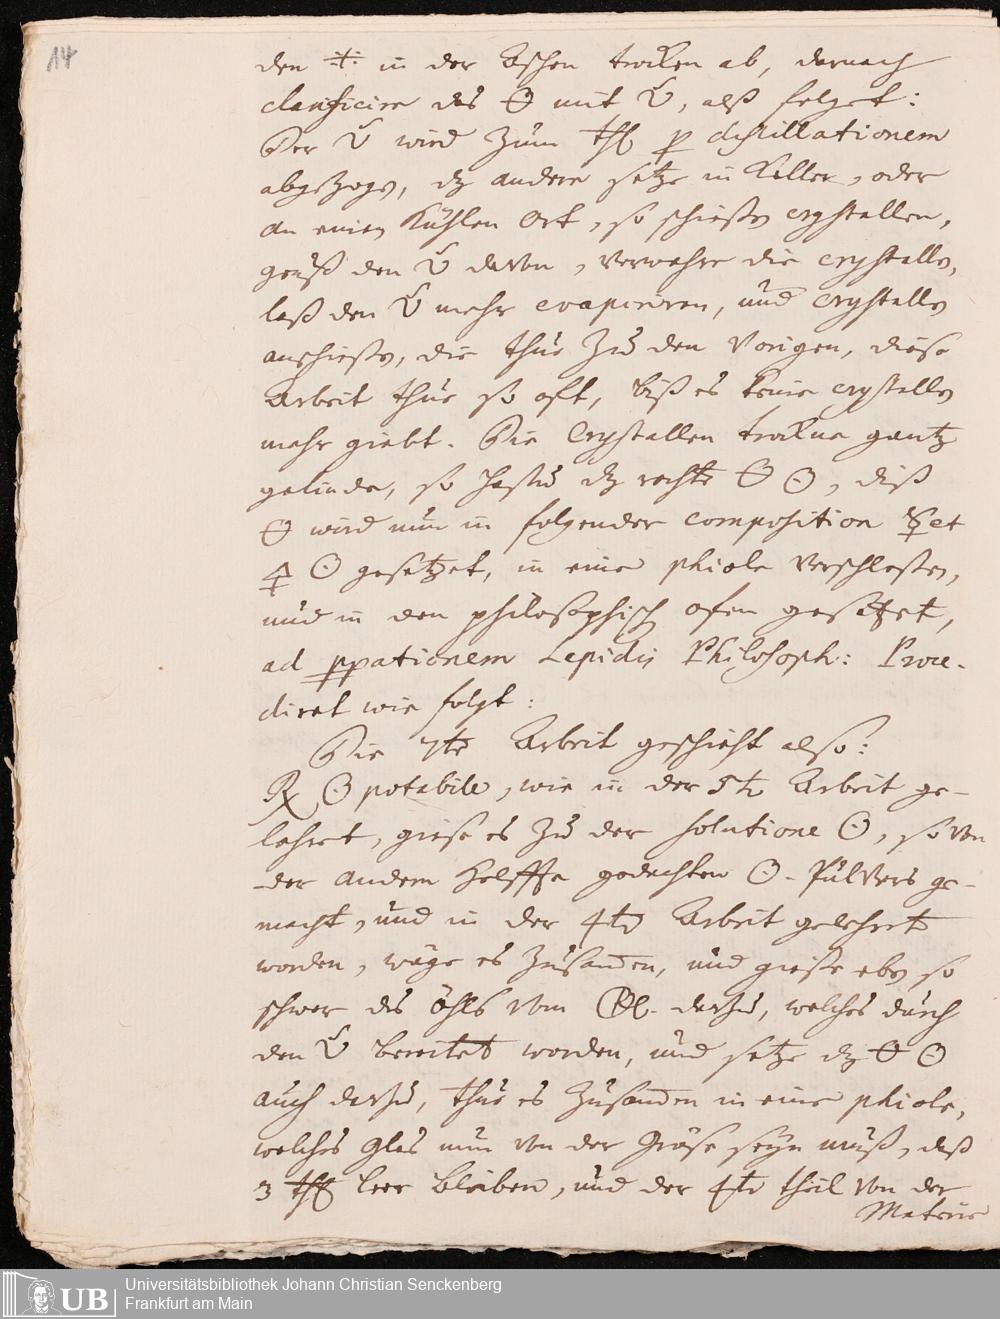 14
den in der Aschen trocken ab, darnach
clarificire das 🜔 mit, alß folget:
Der wird zum Thl p destillationem
abgezogen, dz andere setze in Keller, oder
an einen Kühlen Ort, so schießen crystallen,
geuß den davon, verwahre die crystallen,
laß den mehr evaporiren, und crystallen
anschießen, die thue zu den Vorigen, diese
Arbeit thue so oft, biß es keine crystallen
mehr giebt. Die Crystallen trockne gantz
gelinde, so hastu dz rechte 🜔 ☉, diß
🜔 wird nun in folgender composition ☿ et
🜍 ☉ gesetzet, in eine phiole verschloßen,
und in den philosophisch ofen gesetzet,
ad ppationem Lapidis Philosoph: Proce-
diret wie folgt:
Die 7te Arbeit geschieht also:
℞ ☉ potabile, wie in der 5te Arbeit ge-
lehret, gieße es zu der solutione ☉, so von
der andern Helffte gedachten ☉-Pulvers ge-
macht, und in der 4te Arbeit gelehret
worden, wäge es zusammen, und gieße eben so
schwer des öhls vom dazu, welches durch
den bereitet worden, und setze dz 🜔 ☉
auch darzu, thue es zusammen in eine phiole,
welches Glas nun von der Größe seyn muß, daß
3 Thl leer bleiben, und der 4te theil von der
Materie
UB
Universitätsbibliothek Johann Christian Senckenberg
Frankfurt am Main